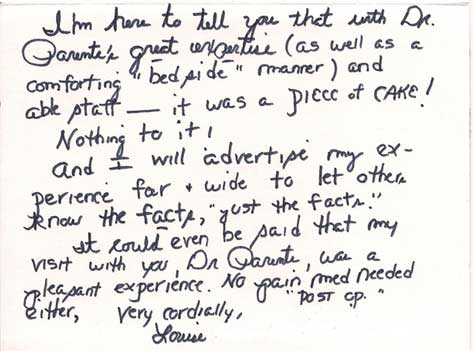 I'm here to tell you that with Dr.
Parente's great expertise (as well as a
comforting "bedside" manner) and
able staff — it was a PIECE of CAKE!
Nothing to it!
And I will advertise my ex-
perience far + wide to let others
know the facts, "just the facts."
It could even be said that my
visit with you, Dr Parente, was a
pleasant experience. No pain med needed
"POST op."
either, Very cordially,
Louise